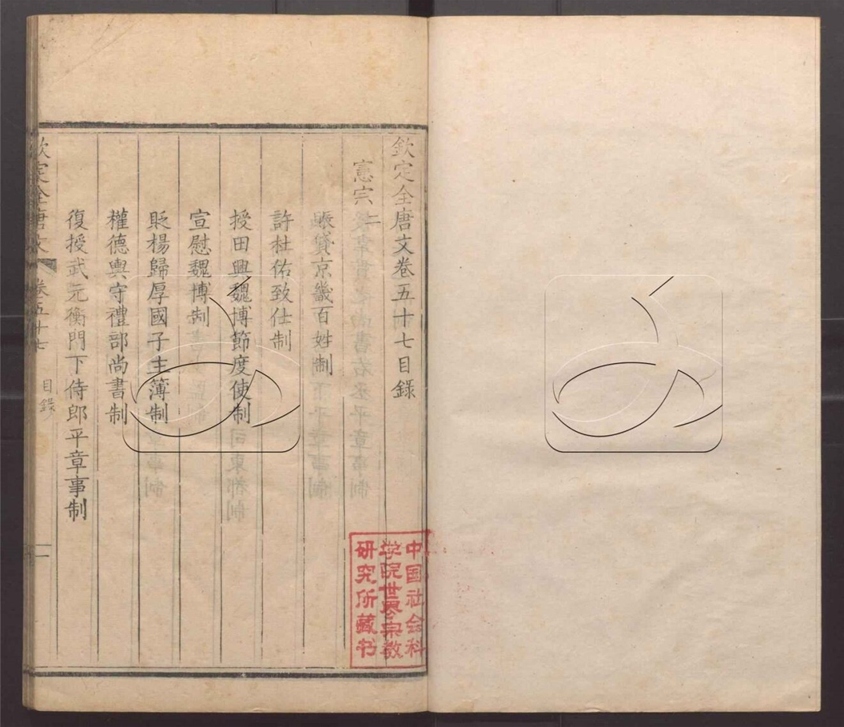 欽定全唐文卷五十七目錄
憲宗二
賑賚京畿百姓制
許杜佑致仕制
授田興魏博節度使制
宣慰魏博制
貶楊歸厚國子主簿制
權德輿守禮部尚書制
復授武元衡門下侍郎平章事制
欽定全唐文 卷五十七 目錄 一
中国社会科
学院世界宗教
研究所藏书